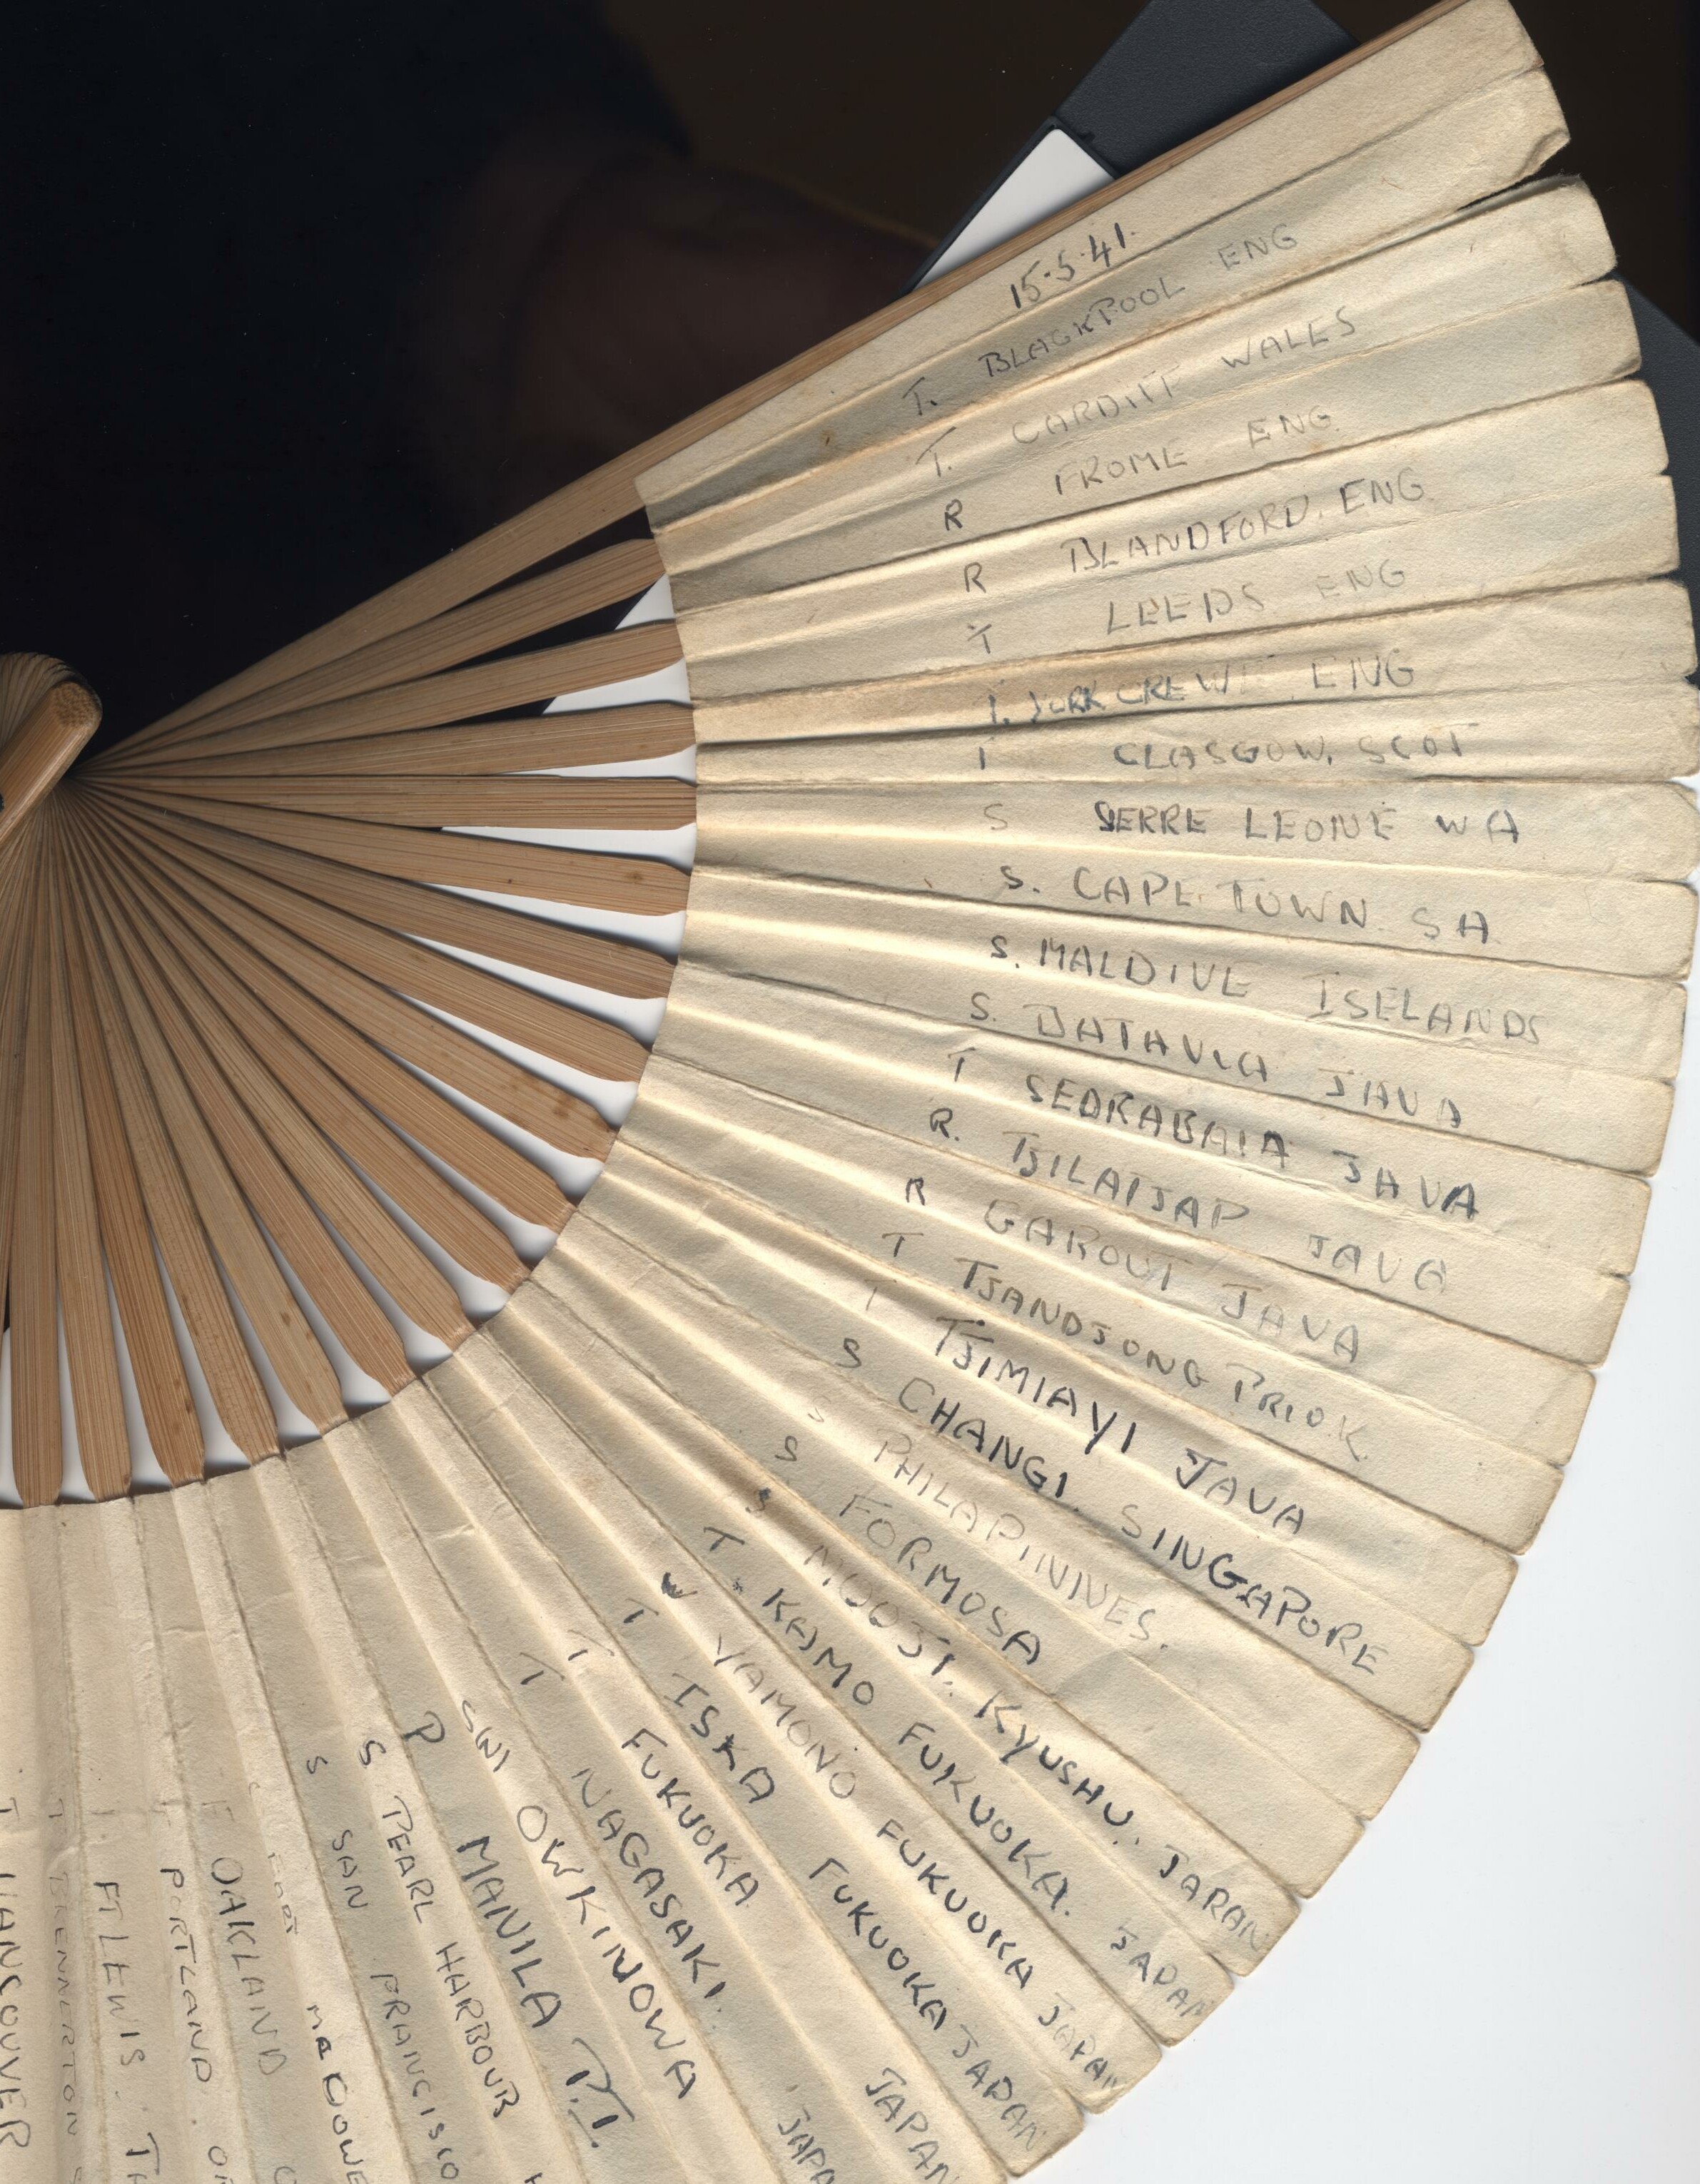 15-5-41.
T. BLACKPOOL ENG
T. CARDIFF WALES
R FROME ENG
R BLANDFORD. ENG
T LEEDS ENG
T. YORK CREWE ENG
T GLASGOW. SCOT
S SERRE LEONE WA
S. CAPE TOWN SA
S. MALDIVE ISELANDS
S. BATAVIA JAVA
T SEORABAIA JAVA
R. TJILAIJAP JAVA
R GAROUT JAVA
T TJANDJONG PRIOK
T TJIMIAYI JAVA
S CHANGI. SINGAPORE
S PHILAPINIVES.
S FORMOSA
S MOOJI. KYUSHU. JAPAN
T KAMO FUKUOKA. JAPAN
W YAMONO FUKUOKA JAPAN
T ISKA FUKUOKA JAPAN
T FUKUOKA JAPAN
T NAGASAKI. JAPA
OWKINOWA
P MANILA P.I.
S PEARL HARBOUR H
S SAN FRANCISCO
FORT McDOWE
F OAKLAND C
PORTLAND. OR
FT LEWIS. TA
T BREMMERTON
T VANCOUVER